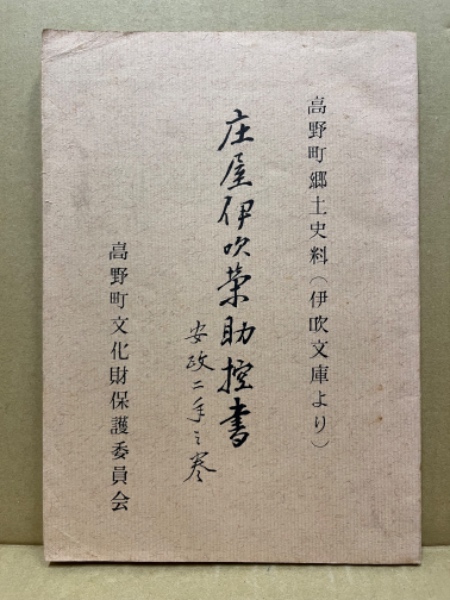 高野町郷土史料(伊吹文庫より)
庄屋伊吹榮助控書
安政二年之巻
高野町文化財保護委員会